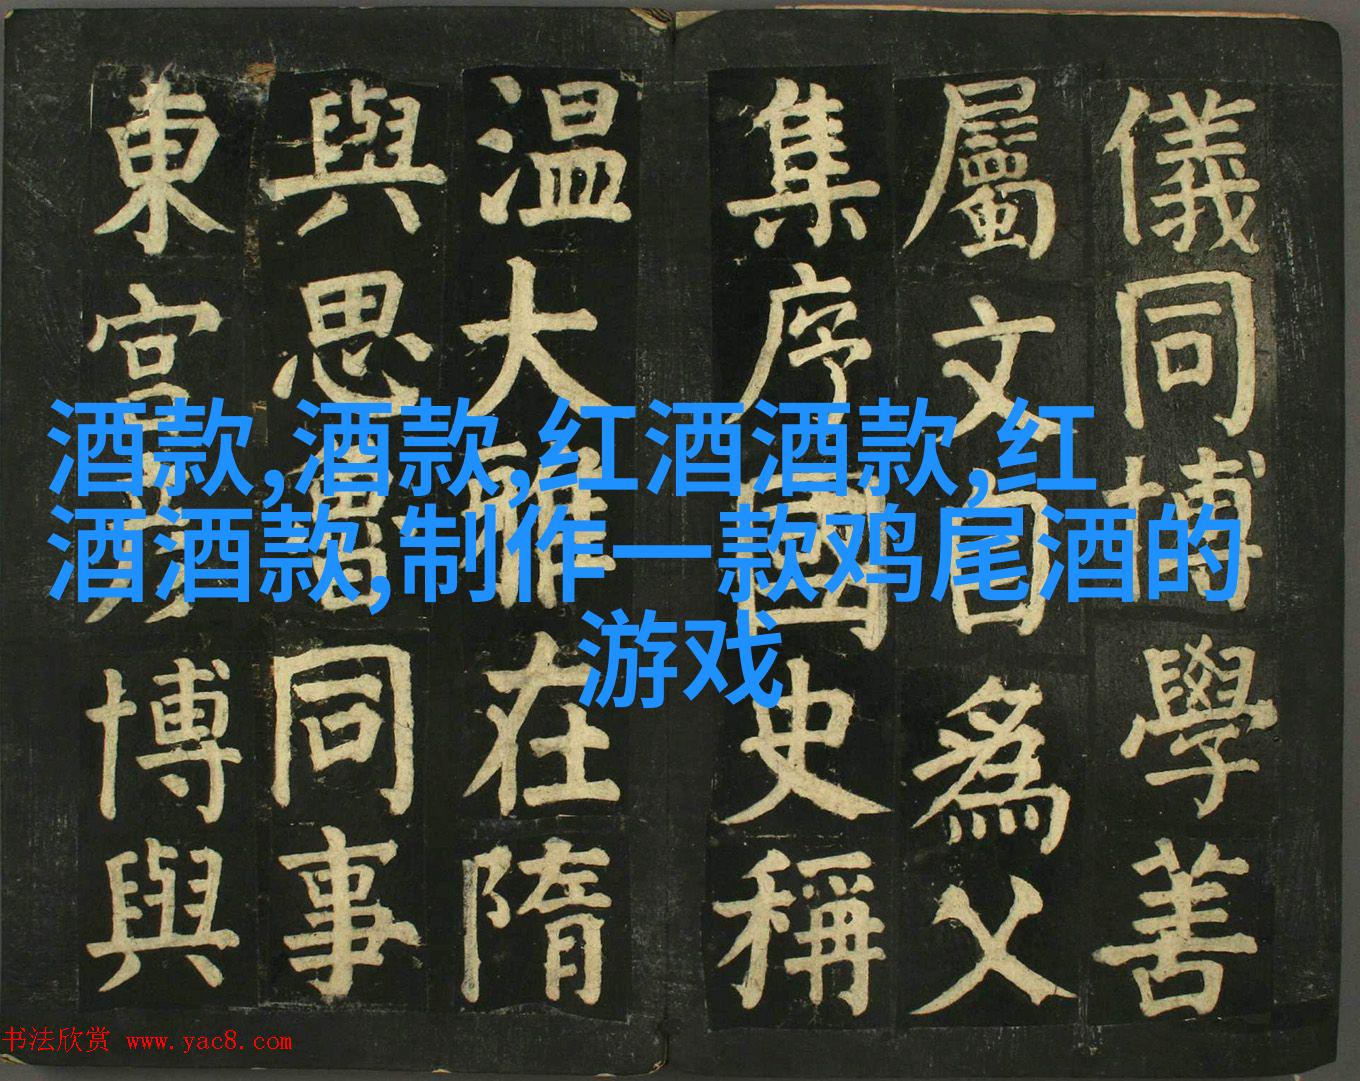 儀同博學善
屬文自爲父
集序國史稱
温大雅在隋
與思同事
東宫博與
酒款,酒款,红酒酒款,红
酒酒款,制作一款鸡尾酒的
游戏
书法欣赏 www.yac8.com